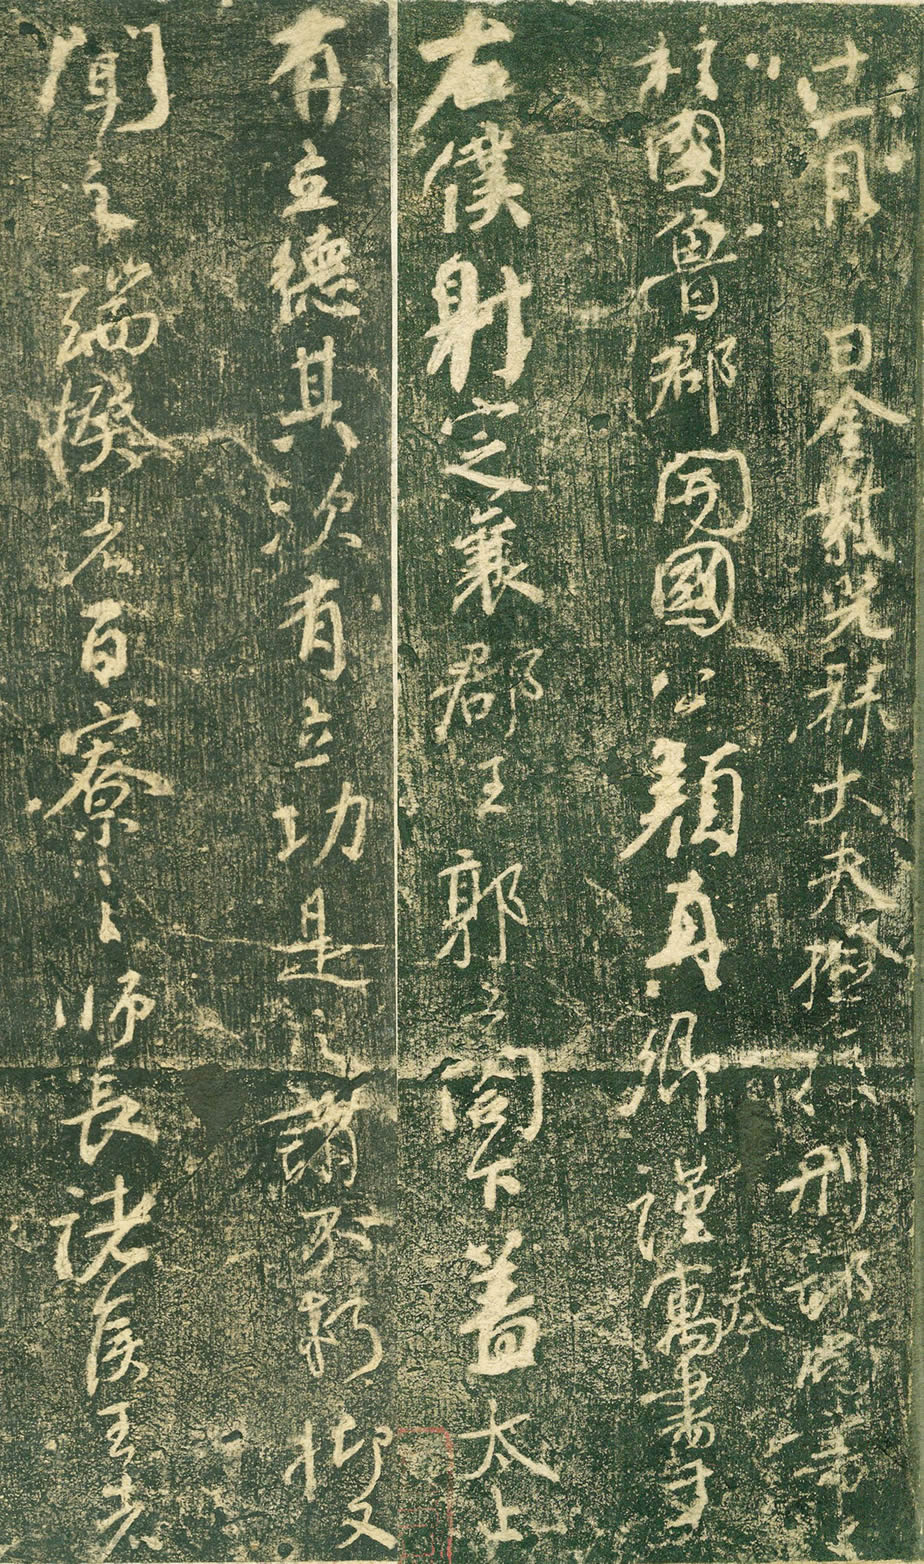 十一月日金紫光祿大夫撿挍刑部尚書上
柱國魯郡開國公顏真卿謹奉寓書于
右僕射定襄郡王郭公閤下蓋太上
有立德其次有立功是之謂不朽抑又
聞之端揆者百寮之師長諸侯王者